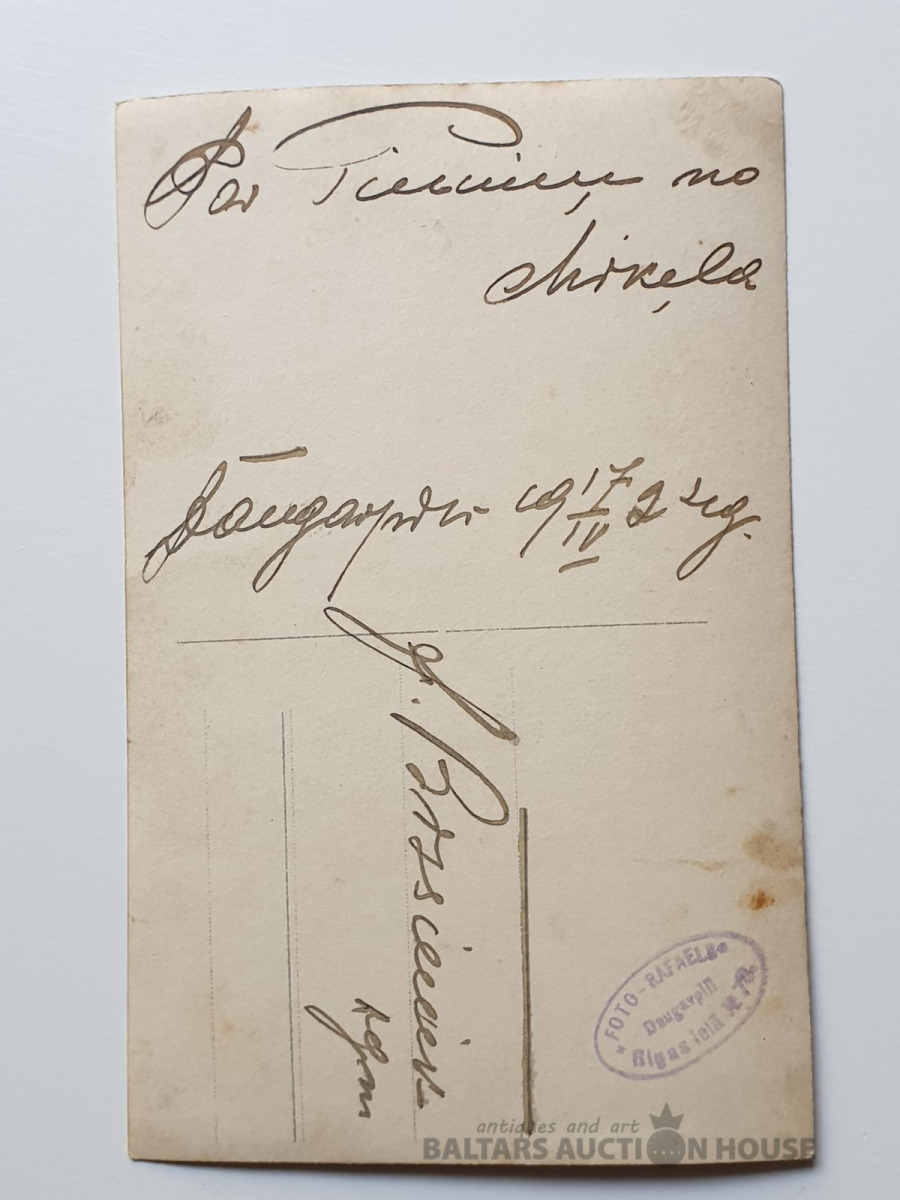 Par Piemiņu no
Miķeļa
Daugavpilī 19 17/IV 2 g.
FOTO-RAFAELS
Daugavpilī
Rīgas ielā № 78
antiques and art
BALTARS AUCTION HOUSE